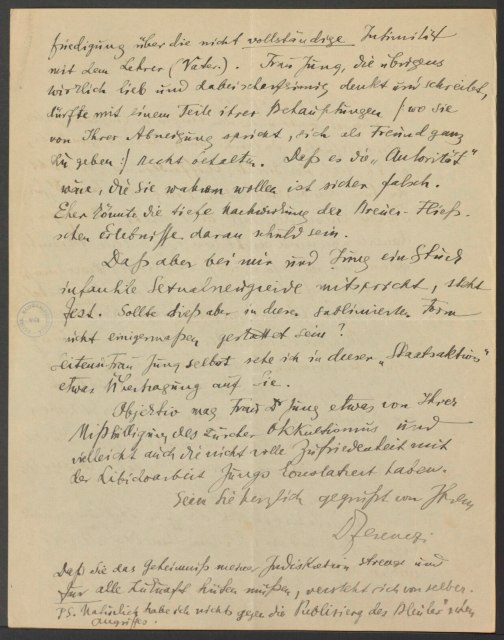 friedigung über die nicht vollständige Intimität
mit dem Lehrer (Vater). Frau Jung, die übrigens
wirklich lieb und dabei scharfsinnig denkt und schreibt,
dürfte mit einem Teile ihrer Behauptungen /: wo sie
von Ihrer Abneigung spricht, sich als Freund ganz
zu geben :/ recht behalten. Daß es die „Autorität"
wäre, die Sie wahren wollen ist sicher falsch.
Eher könnte die tiefe Nachwirkung der Breuer-Fließ-
schen Erlebnisse daran schuld sein.
Daß aber bei mir und Jung ein Stück
infantile Sexualneugierde mitspricht, steht
fest. Sollte dieß aber in dieser sublimierten Form
nicht einigermaßen gestattet sein?
Seitens Frau Jung selbst sehe ich in dieser „Staatsaktion"
etwas Übertragung auf Sie.
Objektiv mag Frau Dr Jung etwas von Ihrer
Mißbilligung des Zürcher Okkultismus und
vielleicht auch die nicht volle Zufriedenheit mit
der Libidoarbeit Jungs konstatiert haben.
Seien Sie herzlich gegrüßt von Ihrem
DFerenczi
Daß Sie das Geheimniß meiner Indiskretion strenge und
für alle Zukunft hüten müssen, versteht sich von selber.
PS. Natürlich habe ich nichts gegen die Publizierung des Bleuler'schen
Angriffes.